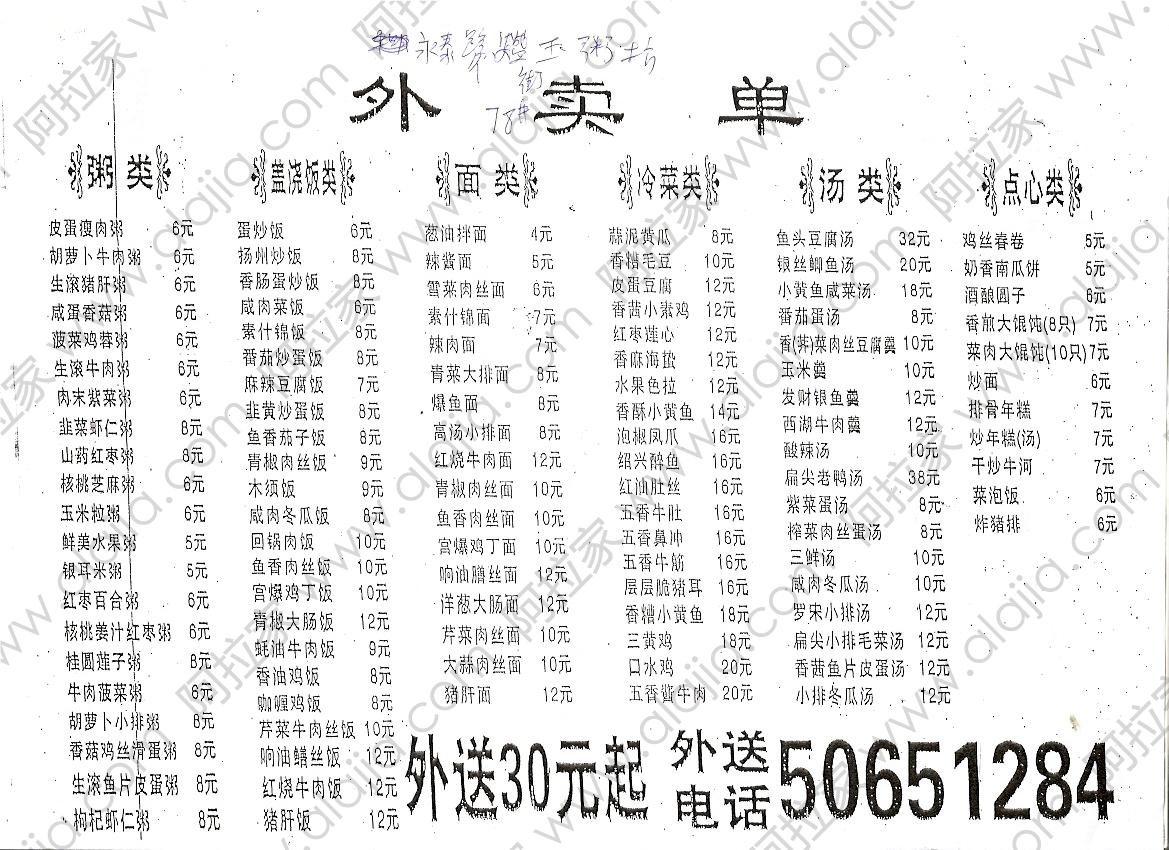 永泰
街
78#
外卖单
粥类
皮蛋瘦肉粥 6元
胡萝卜牛肉粥 6元
生滚猪肝粥 6元
咸蛋香菇粥 6元
菠菜鸡蓉粥 6元
生滚牛肉粥 6元
肉末紫菜粥 6元
韭菜虾仁粥 8元
山药红枣粥 8元
核桃芝麻粥 6元
玉米粒粥 6元
鲜美水果粥 5元
银耳米粥 5元
红枣百合粥 6元
核桃姜汁红枣粥 6元
桂圆莲子粥 8元
牛肉菠菜粥 6元
胡萝卜小排粥 8元
香菇鸡丝滑蛋粥 8元
生滚鱼片皮蛋粥 8元
枸杞虾仁粥 8元
盖浇饭类
蛋炒饭 6元
扬州炒饭 8元
香肠蛋炒饭 8元
咸肉菜饭 6元
素什锦饭 8元
番茄炒蛋饭 8元
麻辣豆腐饭 7元
韭黄炒蛋饭 8元
鱼香茄子饭 8元
青椒肉丝饭 9元
木须饭 9元
咸肉冬瓜饭 8元
回锅肉饭 10元
鱼香肉丝饭 10元
宫爆鸡丁饭 10元
青椒大肠饭 12元
蚝油牛肉饭 9元
香油鸡饭 8元
咖喱鸡饭 8元
芹菜牛肉丝饭 10元
响油鳝丝饭 12元
红烧牛肉饭 12元
猪肝饭 12元
面类
葱油拌面 4元
辣酱面 5元
雪菜肉丝面 6元
素什锦面 7元
辣肉面 7元
青菜大排面 8元
爆鱼面 8元
高汤小排面 8元
红烧牛肉面 12元
青椒肉丝面 10元
鱼香肉丝面 10元
宫爆鸡丁面 10元
响油膳丝面 12元
洋葱大肠面 12元
芹菜肉丝面 10元
大蒜肉丝面 10元
猪肝面 12元
冷菜类
蒜泥黄瓜 8元
香糟毛豆 10元
皮蛋豆腐 12元
香茜小素鸡 12元
红枣莲心 12元
香麻海蜇 12元
水果色拉 12元
香酥小黄鱼 14元
泡椒凤爪 16元
绍兴醉鱼 16元
红油肚丝 16元
五香牛肚 16元
五香鼻冲 16元
五香牛筋 16元
层层脆猪耳 16元
香糟小黄鱼 18元
三黄鸡 18元
口水鸡 20元
五香酱牛肉 20元
汤类
鱼头豆腐汤 32元
银丝鲫鱼汤 20元
小黄鱼咸菜汤 18元
番茄蛋汤 8元
香(荠)菜肉丝豆腐羹 10元
玉米羹 10元
发财银鱼羹 12元
西湖牛肉羹 12元
酸辣汤 10元
扁尖老鸭汤 38元
紫菜蛋汤 8元
榨菜肉丝蛋汤 8元
三鲜汤 10元
咸肉冬瓜汤 10元
罗宋小排汤 12元
扁尖小排毛菜汤 12元
香茜鱼片皮蛋汤 12元
小排冬瓜汤 12元
点心类
鸡丝春卷 5元
奶香南瓜饼 5元
酒酿圆子 6元
香煎大馄饨(8只) 7元
菜肉大馄饨(10只) 7元
炒面 6元
排骨年糕 7元
炒年糕(汤) 7元
干炒牛河 7元
菜泡饭 6元
炸猪排 6元
外送30元起
外送电话 50651284
阿拉家 www.alajia.com